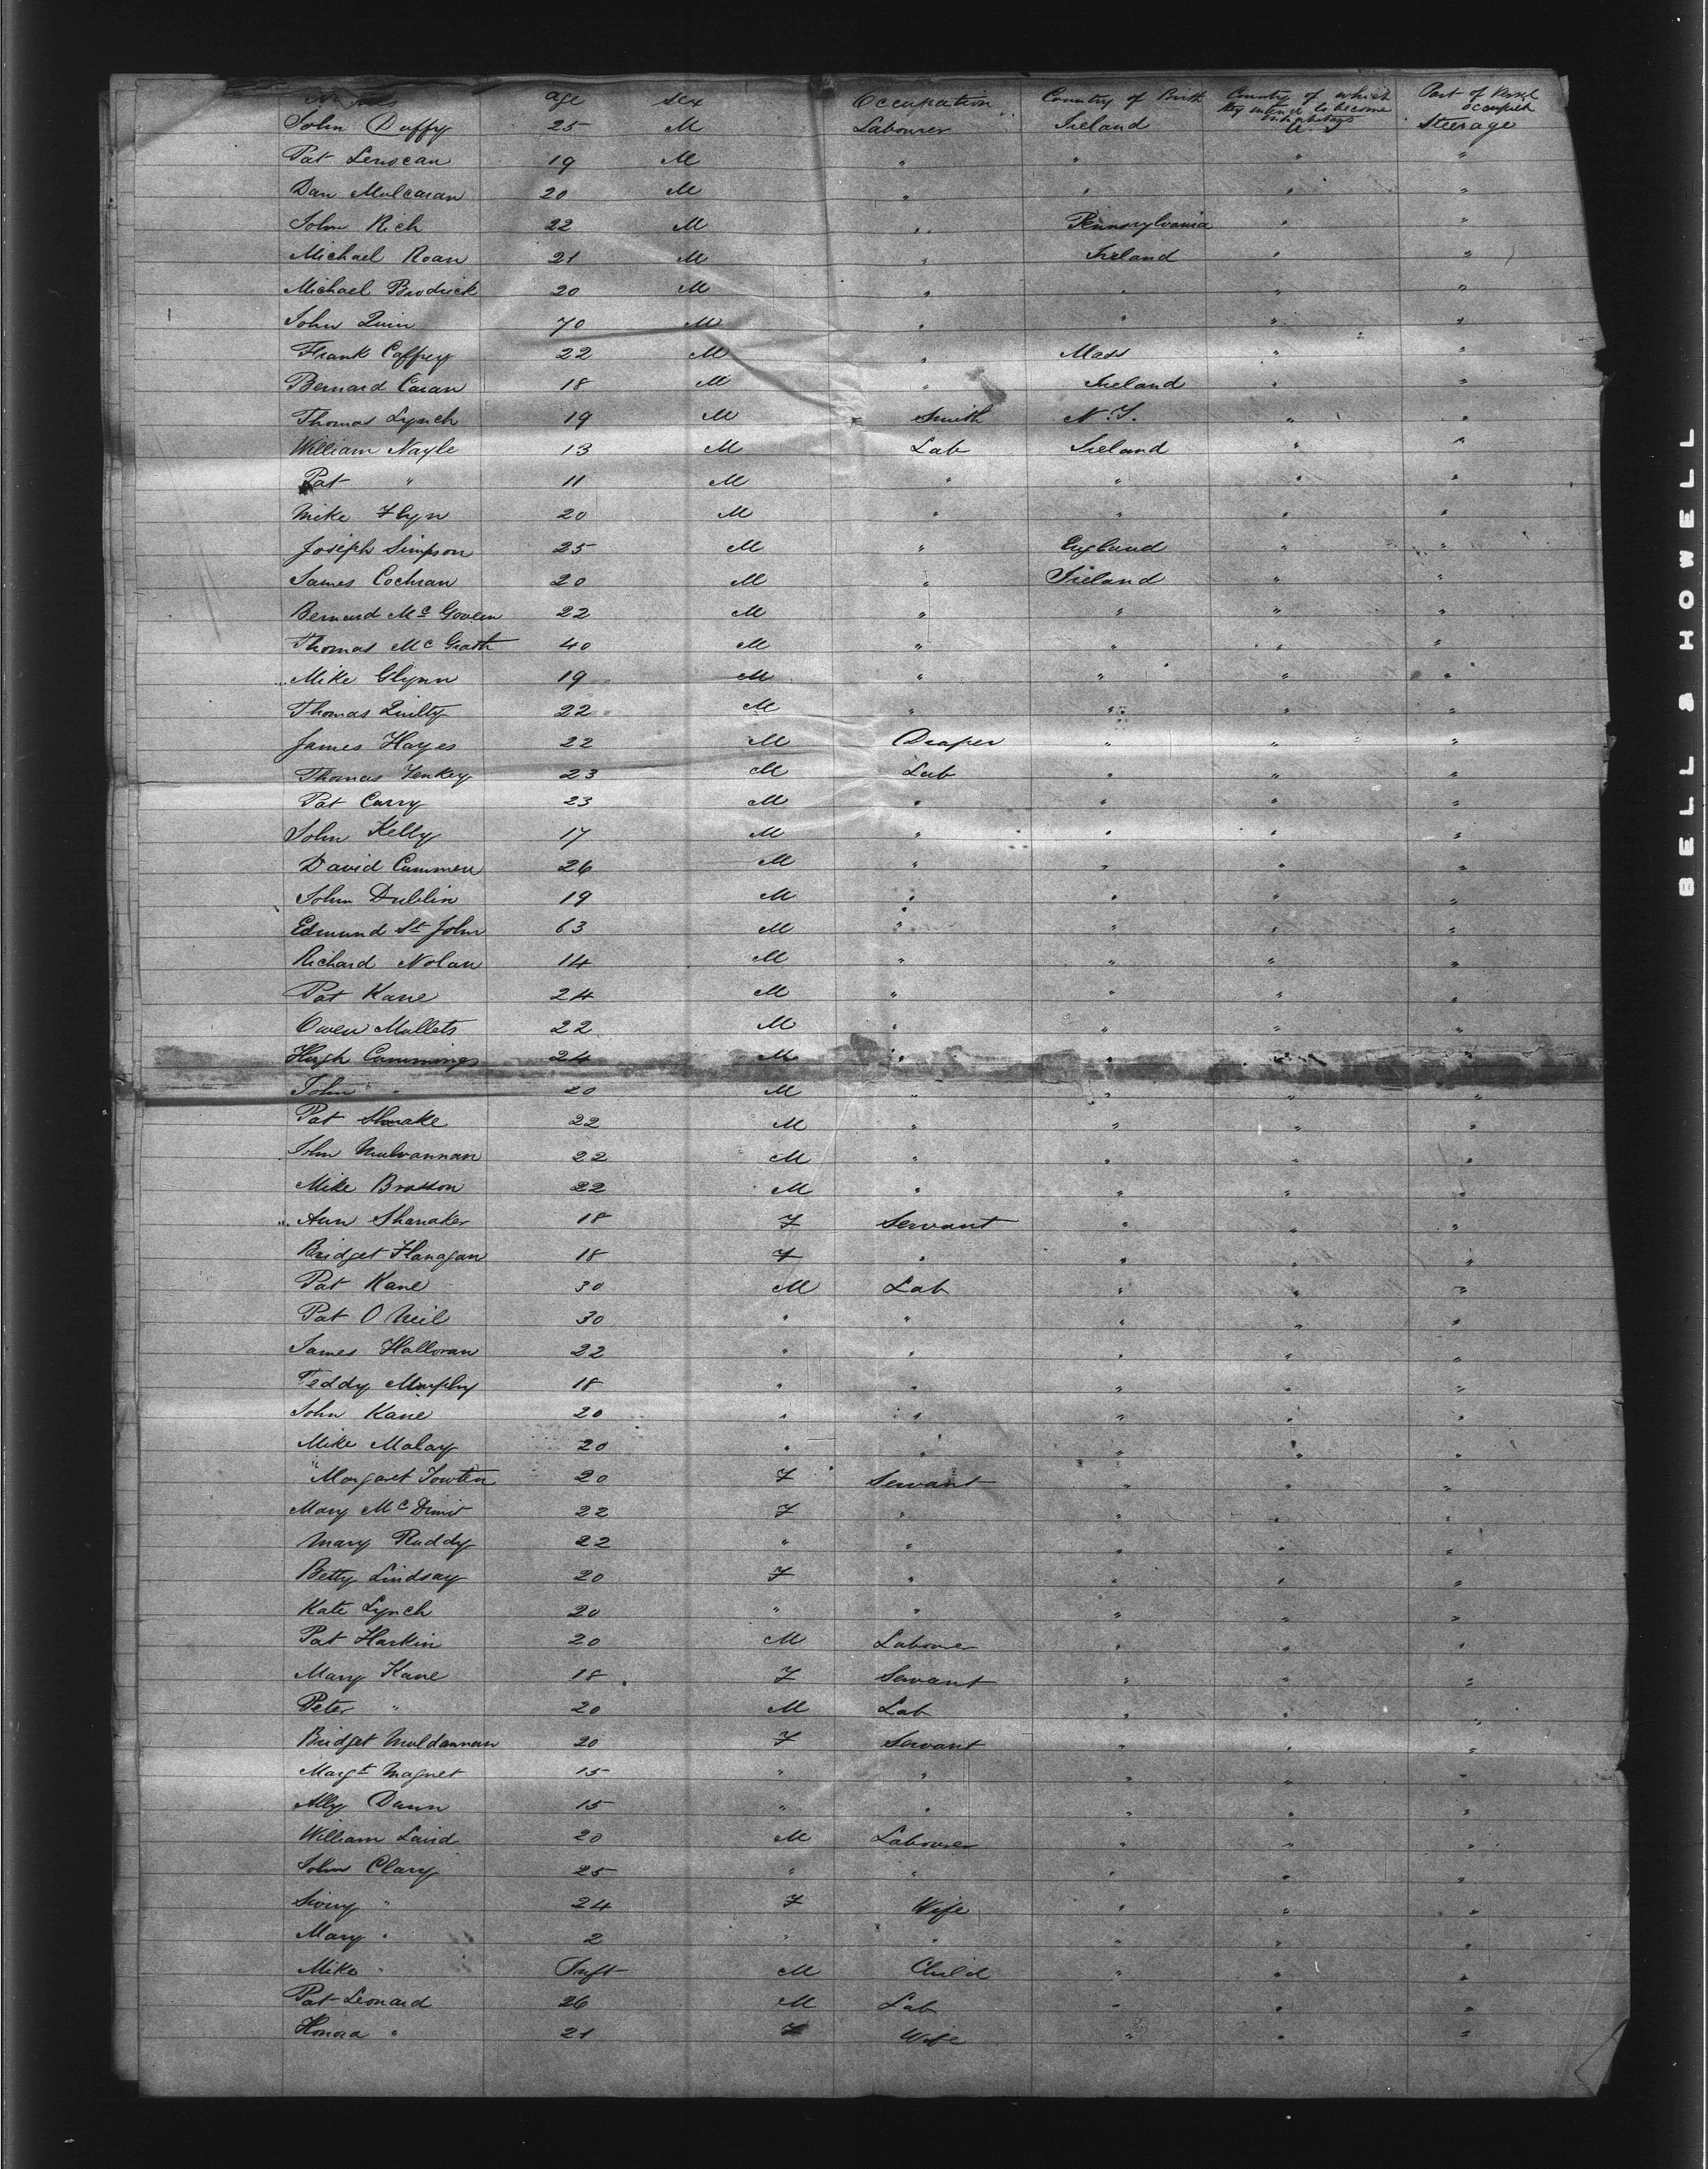 Names age Sex Occupation Country of Birth Country of which they intend to become inhabitants Part of Vessel occupied
John Duffy 25 M Labourer Ireland U. S Steerage
Pat Lenocan 19 M " " " "
Dan Mulcaran 20 M " " " "
John Rich 22 M " Pennsylvania " "
Michael Roan 21 M " Ireland " "
Michael Brodrick 20 M " " " "
John Quin 70 M " " " "
Frank Caffrey 22 M " Mass " "
Bernard Caran 18 M " Ireland " "
Thomas Lynch 19 M Smith N. Y. " "
William Nayle 13 M Lab Ireland " "
Pat " 11 M " " " "
Mike Flyn 20 M " " " "
Joseph Simpson 25 M " England " "
James Cochran 20 M " Ireland " "
Bernard Mc Govern 22 M " " " "
Thomas Mc Grath 40 M " " " "
Mike Glynn 19 M " " " "
Thomas Quilty 22 M " " " "
James Hayes 22 M Draper " " "
Thomas Fenkey 23 M Lab " " "
Pat Carry 23 M " " " "
John Kelly 17 M " " " "
David Cummen 26 M " " " "
John Dublin 19 M " " " "
Edmund St John 63 M " " " "
Richard Nolan 14 M " " " "
Pat Kane 24 M " " " "
Owen Mullets 22 M " " " "
Hugh Cummings 24 M " " " "
John " 20 M " " " "
Pat Shnake 22 M " " " "
John Mulvannan 22 M " " " "
Mike Brosson 22 M " " " "
Ann Shanaker 18 F Servant " " "
Bridget Flanagan 18 F " " " "
Pat Kane 30 M Lab " " "
Pat O Neil 30 " " " " "
James Halloran 22 " " " " "
Teddy Murphy 18 " " " " "
John Kane 20 " " " " "
Mike Malay 20 " " " " "
Margaret Towten 20 F Servant " " "
Mary Mc Dimit 22 F " " " "
Mary Ruddy 22 " " " " "
Betty Lindsay 20 F " " " "
Kate Lynch 20 " " " " "
Pat Harkin 20 M Labourer " " "
Mary Kane 18 F Servant " " "
Peter " 20 M Lab " " "
Bridget Muldannan 20 F Servant " " "
Margt Magnet 15 " " " " "
Ally Dunn 15 " " " " "
William Laird 20 M Labourer " " "
John Clary 25 " " " " "
" 24 F Wife " " "
Mary " 2 " " " " "
Mike " Inft M Child " " "
Pat Leonard 26 M Lab " " "
Honora " 21 F Wife " " "
BELL & HOWELL